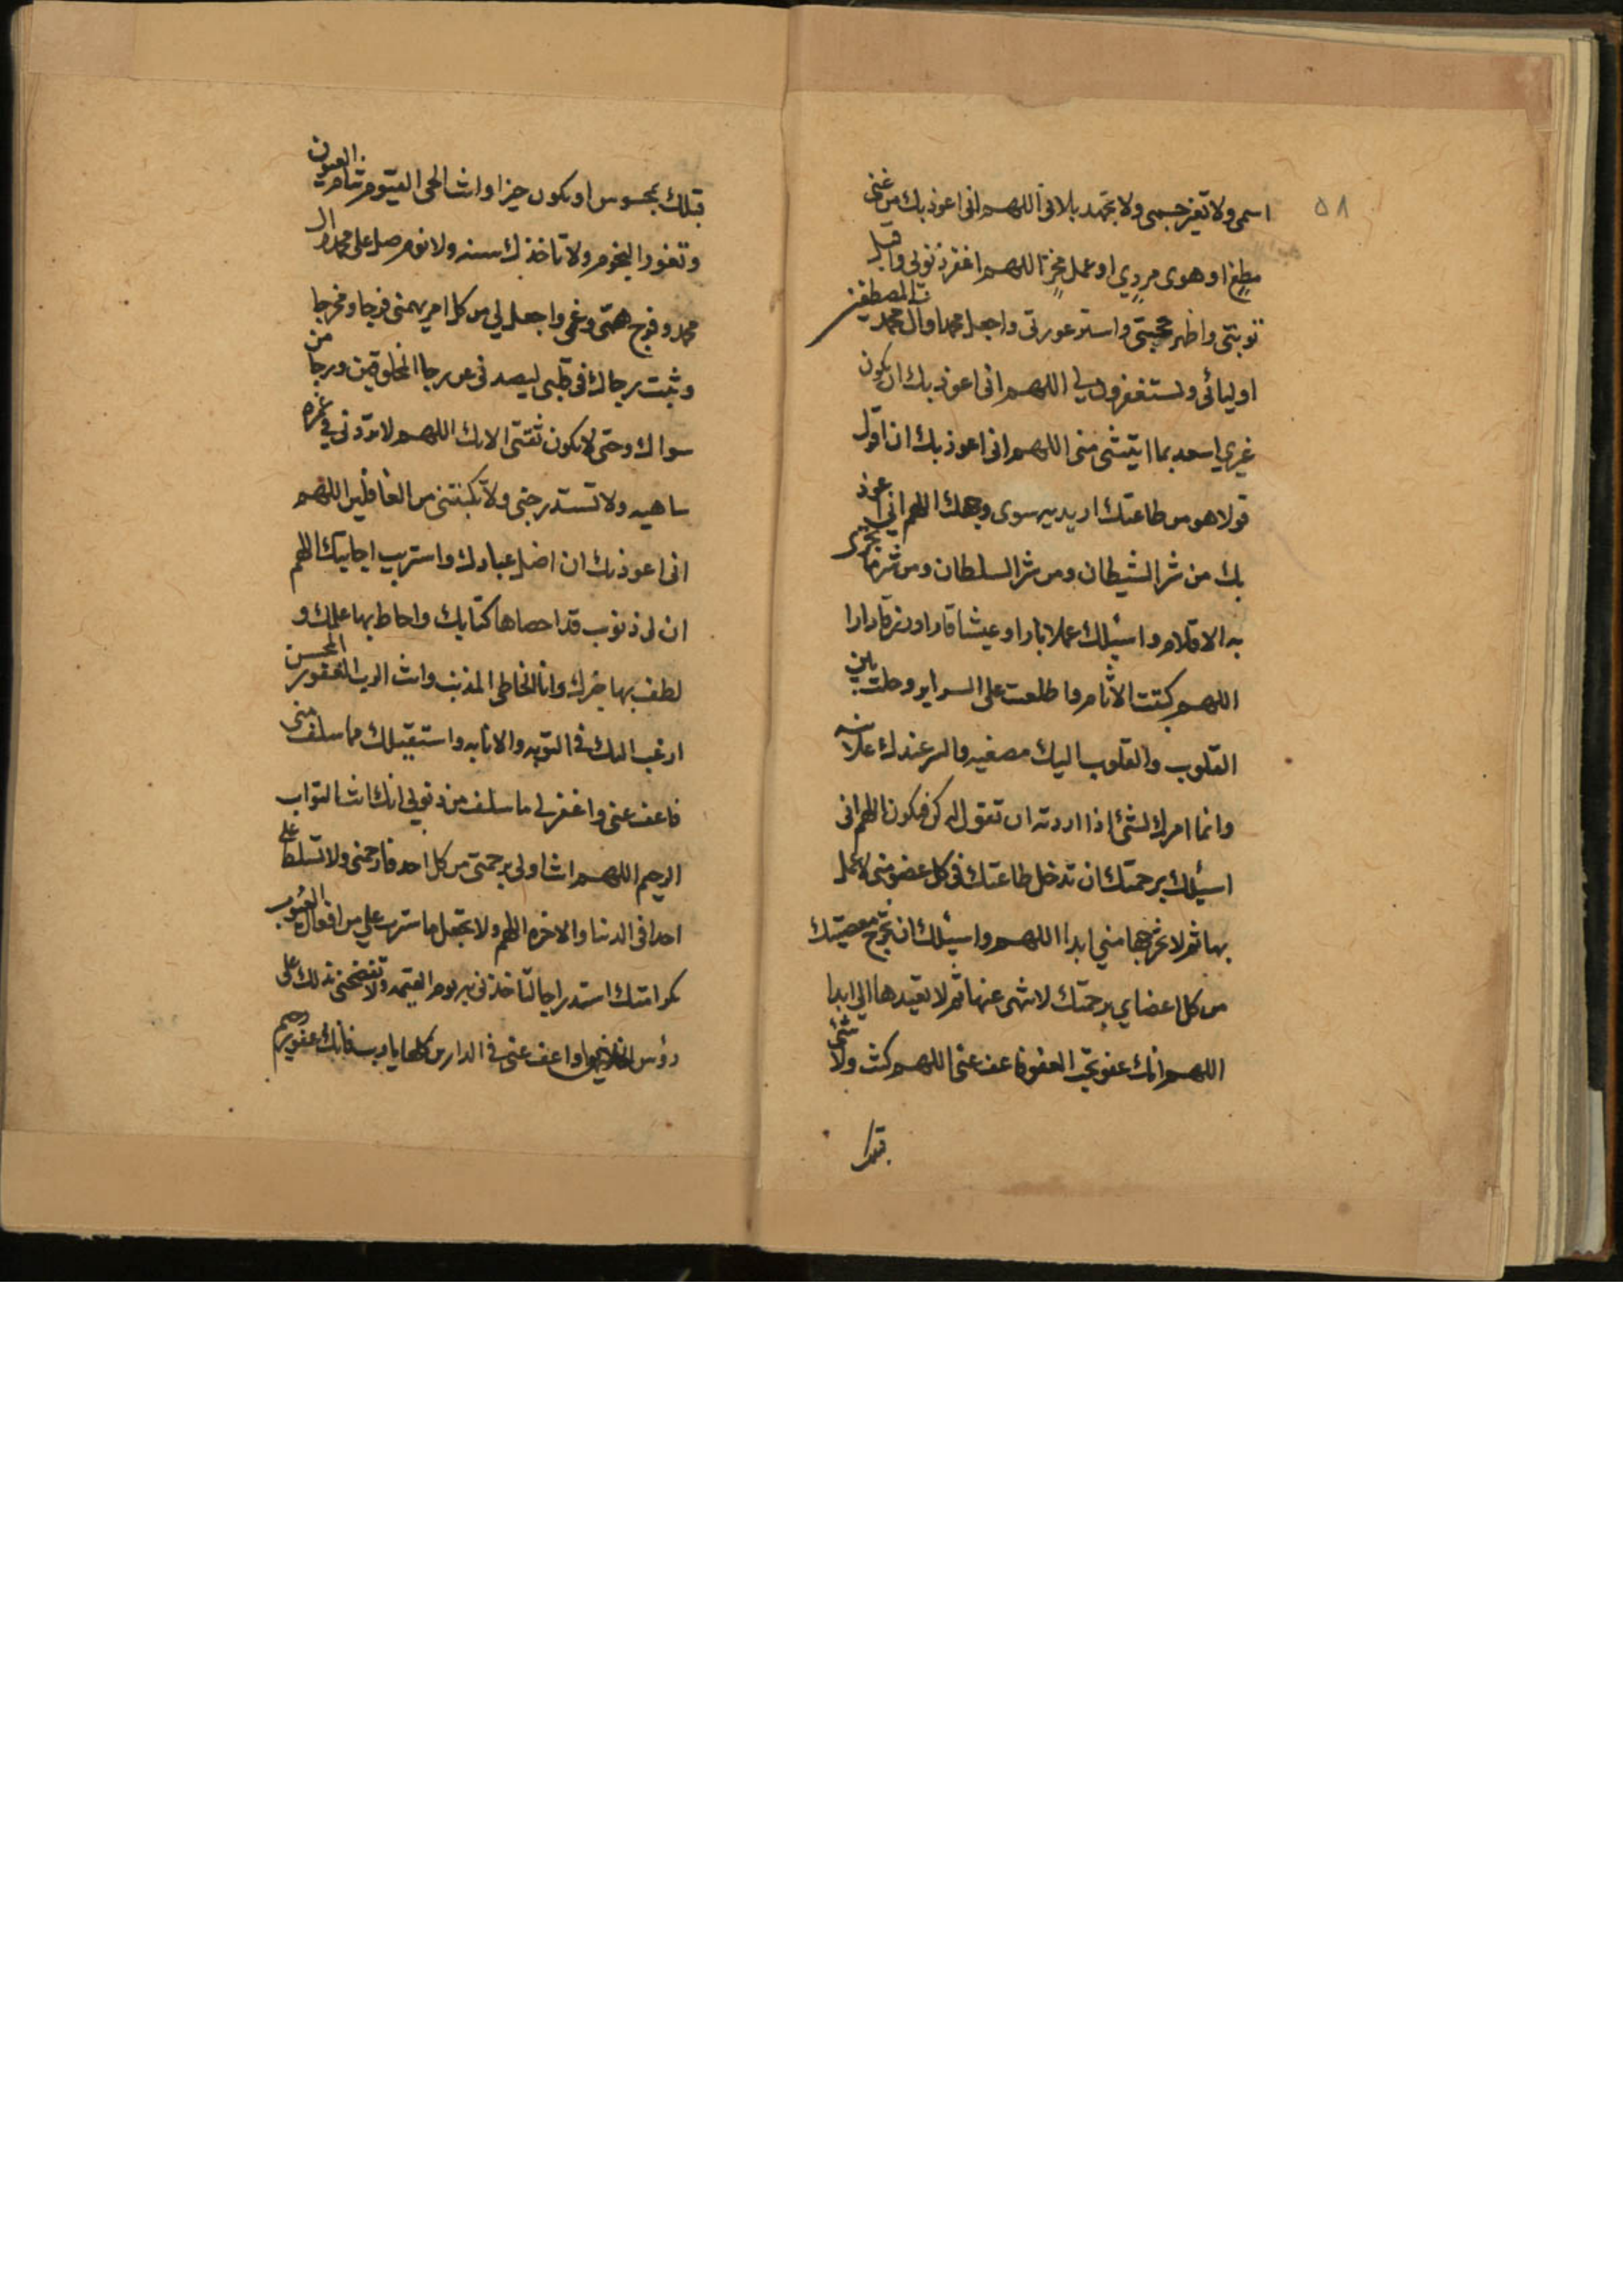 ٥٨
اسمی ولا تغیر جسمی ولا تجهد بلائی اللهم انی اعوذ بك من غنی
مطغ او هوی مردی او عمل مخز اللهم اغفر ذنوبی واقبل
توبتی واظهر حجتی واستر عورتی واجعل محمدا وآل محمد المصطفین
اولیائی ویستغفرون لی اللهم انی اعوذ بك ان یکون
غیری اسعد بما اتیتنی منی اللهم انی اعوذ بك ان اقول
قولا هو من طاعتك ارید به سوی وجهك اللهم انی اعوذ
بك من شر الشیطان ومن شر السلطان ومن شر ما تجری
به الاقلام واسئلك عملا بارا وعیشا قارا ورزقا دارا
اللهم کتبت الاثام واطلعت علی السرایر وحلت بین
القلوب والقلوب الیك مصغیه والسر عندك علانیه
وانما امرك لشئ اذا اردته ان تقول له کن فیکون اللهم انی
اسئلك برحمتك ان تدخل طاعتك فی کل عضو منی لاعمل
بها ثم لا تخرجها منی ابدا اللهم واسئلك ان تخرج معصیتك
من کل اعضای برحمتك لانتهی عنها ثم لا تعیدها الی ابدا
اللهم انك عفو تحب العفو فاعف عنی اللهم کنت ولا شئ
قبلك
قبلك بمحسوس او یکون حیزا وانت الحی القیوم تنام العیون
وتغور النجوم ولا تاخذك سنه ولا نوم صل علی محمد وال
محمد وفرج همی وغمی واجعل لی من کل امر یهمنی فرجا ومخرجا
وثبت رجاك فی قلبی لیصدنی عن رجا المخلوقین ورجا من
سواك وحتی لا یکون ثقتی الا بك اللهم لا تردنی فی غمره
ساهیه ولا تستدرجنی ولا تکبتنی من الغافلین اللهم
انی اعوذ بك ان اضل عبادك واستریب اجابتك اللهم
ان لی ذنوب قد احصاها کتابك واحاط بها علمك و
لطف بها خبرك وانا الخاطی المذنب وانت الرب الغفور المحسن
ارغب الیك فی التوبه والانابه واستقیلك مما سلف منی
فاعف عنی واغفر لی ما سلف من ذنوبی انك انت التواب
الرحیم اللهم انت اولی برحمتی من کل احد فارحمنی ولا تسلط علی
احدا فی الدنیا والاخره اللهم ولا تجعل ما سترت علی من افعال العیوب
کرامتك استدراجا لتاخذنی به یوم القیمه ولا تفضحنی بذلك علی
رؤس الخلایق واعف عنی فی الدارین کلها یا رب فانك غفور رحیم